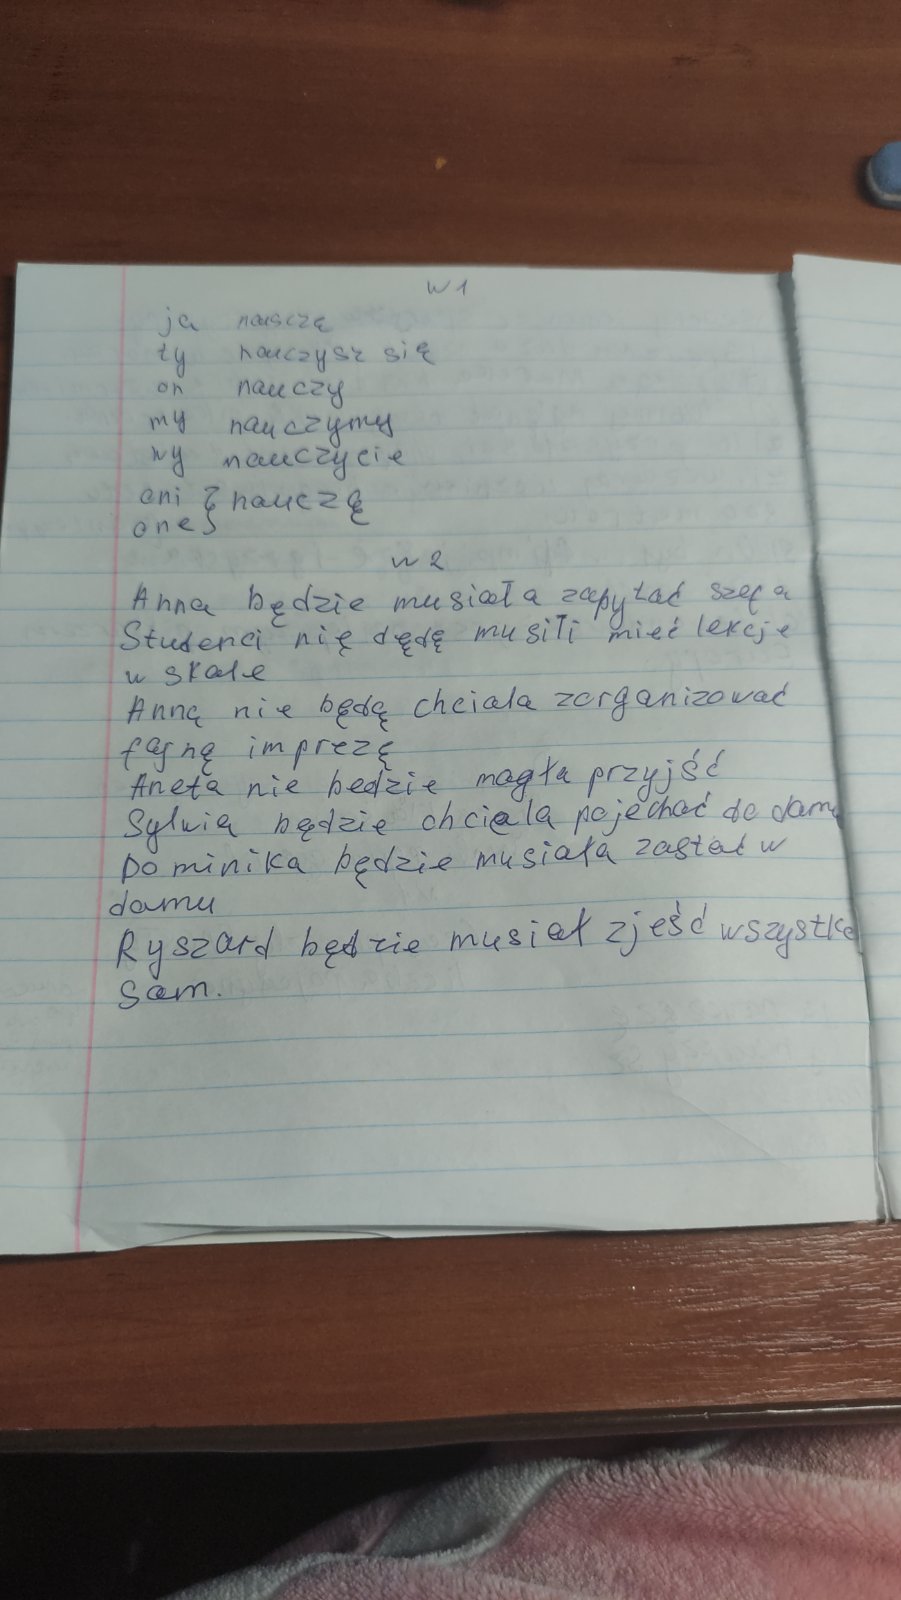 W 1
ja nauczę
ty nauczysz się
on nauczy
my nauczymy
wy nauczycie
oni } nauczą
one }
w 2
Anna będzie musiała zapytać szefa
Studenci nię dędę musili mieć lekcje
w skole
Anną nie będą chciala zorganizować
fajną imprezę
Aneta nie bedzie magła przyjść
Sylwią będzie chciela pojechać do damu
Dominika będzie musiała zastać w
damu
Ryszard będzie musiał zjeść wszystko
Sam.